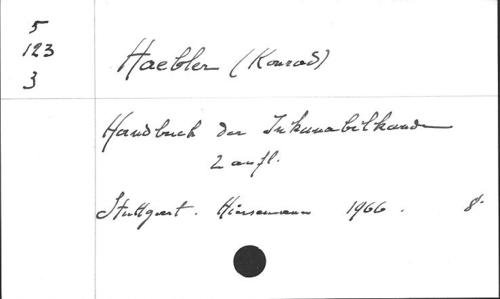 5
123
3
Haebler (Konrad)
Handbuch der Inkunabelkunde
2 aufl.
Stuttgart. Hiersemann 1966. 8°